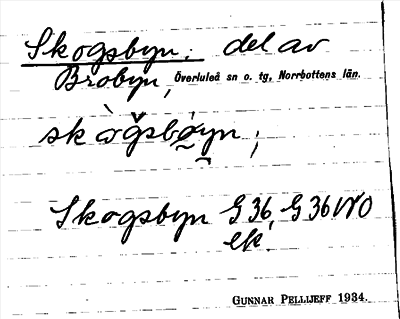 Skogsbyn: del av
Brobyn, Överluleå sn o. tg, Norrbottens län.
skòǧsbǿyn;
Skogsbyn G 36, G 36 NO
ek.
GUNNAR PELLIJEFF 1934.